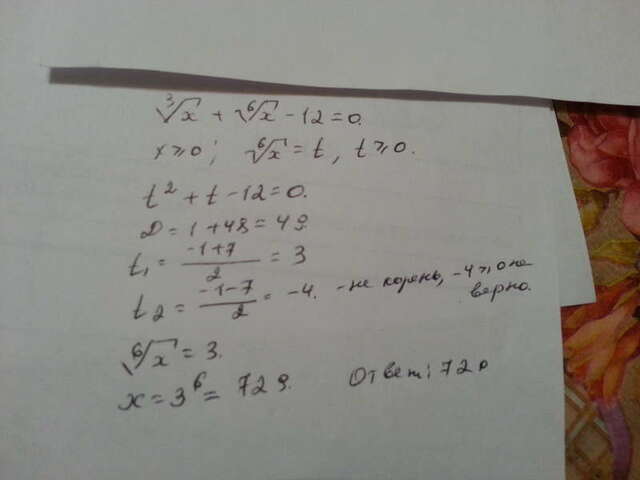 ∛x + ⁶√x - 12 = 0.
x ⩾ 0; ⁶√x = t, t ⩾ 0.
t² + t - 12 = 0.
D = 1 + 48 = 49.
t₁ = (-1+7)/2 = 3
t₂ = (-1-7)/2 = -4. - не корень, -4 ⩾ 0 не верно.
⁶√x = 3.
x = 3⁶ = 729. Ответ: 729